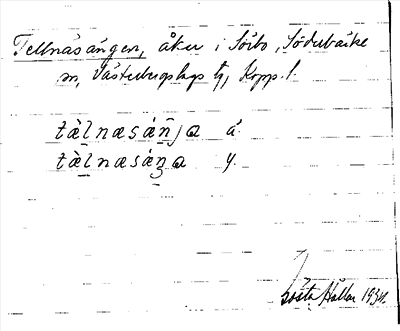 Tellnäsängen, åker i Sörbo, Söderbärke
sn, Västerbergslags tg, Kopp. l.
tàlnæsáŋja ä.
tàlnasáŋa y.
Gösta Hallen 1934.